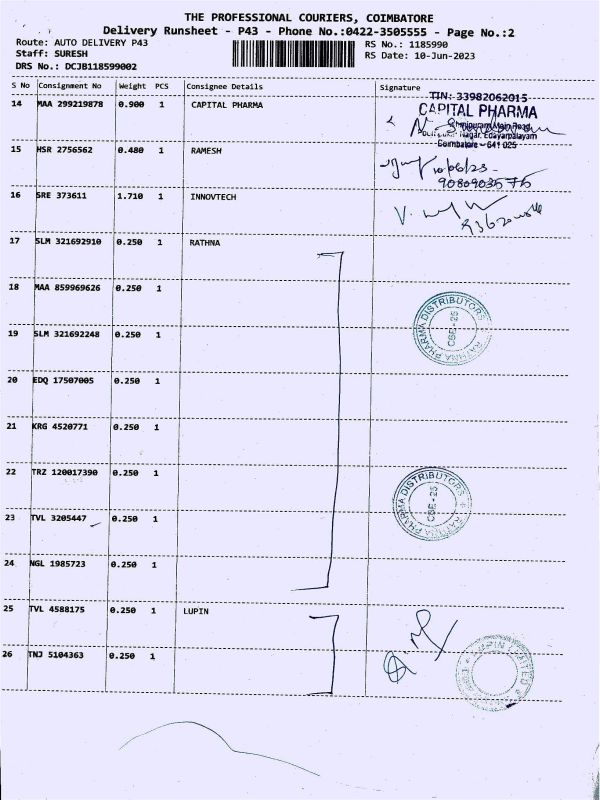 THE PROFESSIONAL COURIERS, COIMBATORE
Delivery Runsheet - P43 - Phone No.:0422-3505555 - Page No.:2
Route: AUTO DELIVERY P43
RS No.: 1185990
Staff: SURESH
RS Date: 10-Jun-2023
DRS No.: DCJB118599002
S No Consignment No Weight PCS Consignee Details Signature
14 MAA 299219878 0.900 1 CAPITAL PHARMA
TIN: 33982062015
CAPITAL PHARMA
Main Road,
Nagar, Edayarpalayam
Coimbatore - 641 025
15 HSR 2756562 0.480 1 RAMESH
10/06/23
9080903575
16 SRE 373611 1.710 1 INNOVTECH
17 SLM 321692910 0.250 1 RATHNA
18 MAA 859969626 0.250 1
RATHNA PHARMA DISTRIBUTORS
CBE-25
19 SLM 321692248 0.250 1
20 EDQ 17507005 0.250 1
21 KRG 4520771 0.250 1
22 TRZ 120017390 0.250 1
RATHNA PHARMA DISTRIBUTORS
CBE-25
23 TVL 3205447 0.250 1
24 NGL 1985723 0.250 1
25 TVL 4588175 0.250 1 LUPIN
26 TNJ 5104363 0.250 1
LUPIN LIMITED